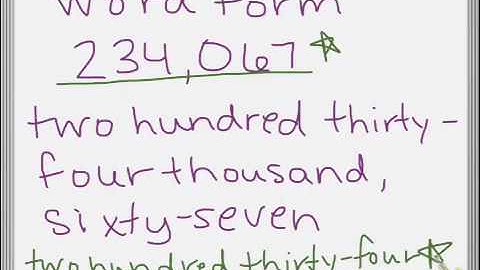 word form
234,067
two hundred thirty-
four thousand,
sixty-seven
two hundred thirty-four